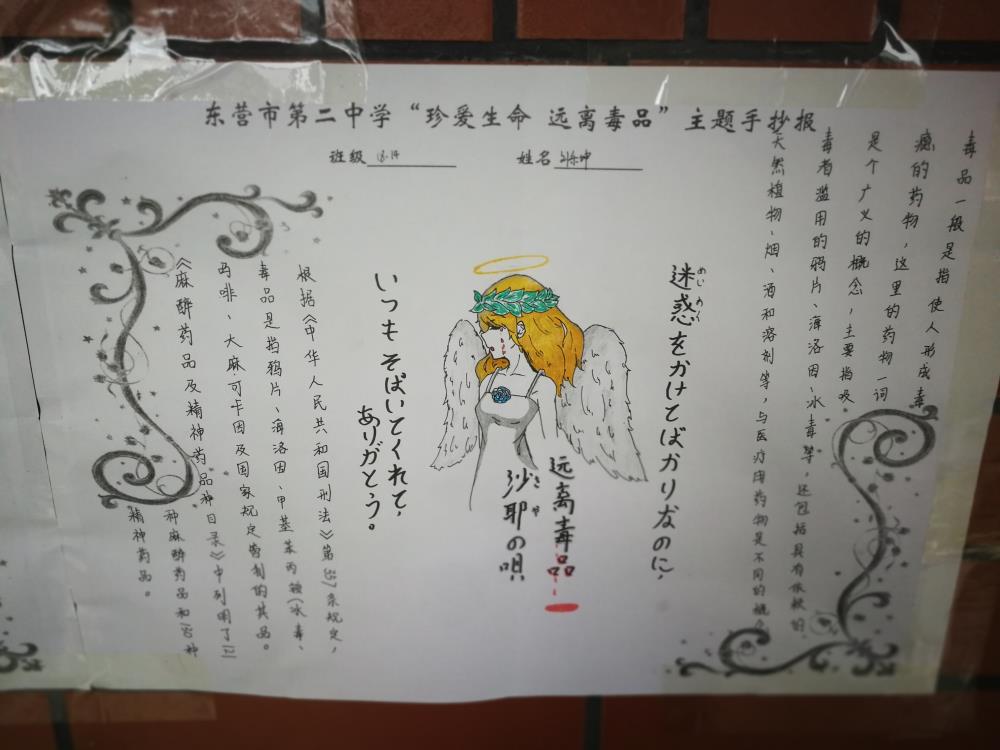 东营市第二中学“珍爱生命 远离毒品”主题手抄报
班级 18.14
姓名
毒品一般是指使人形成毒
瘾的药物，这里的药物一词
是个广义的概念，主要指吸
毒者滥用的鸦片、海洛因、冰毒等，还包括具有依赖的
天然植物、烟、酒和溶剂等，与医疗用药物是不同的概念
迷惑をかけてばかりなのに，
めい わく
远离毒品
沙耶の唄
さ や
いつもそばいてくれて，
ありがとう。
根据《中华人民共和国刑法》第357条规定，
毒品是指鸦片、海洛因、甲基苯丙胺（冰毒、
吗啡、大麻可卡因及国家规定管制的其品。
《麻醉药品及精神药品种目录》中列明了121
种麻醉药品和130种
精神药品。